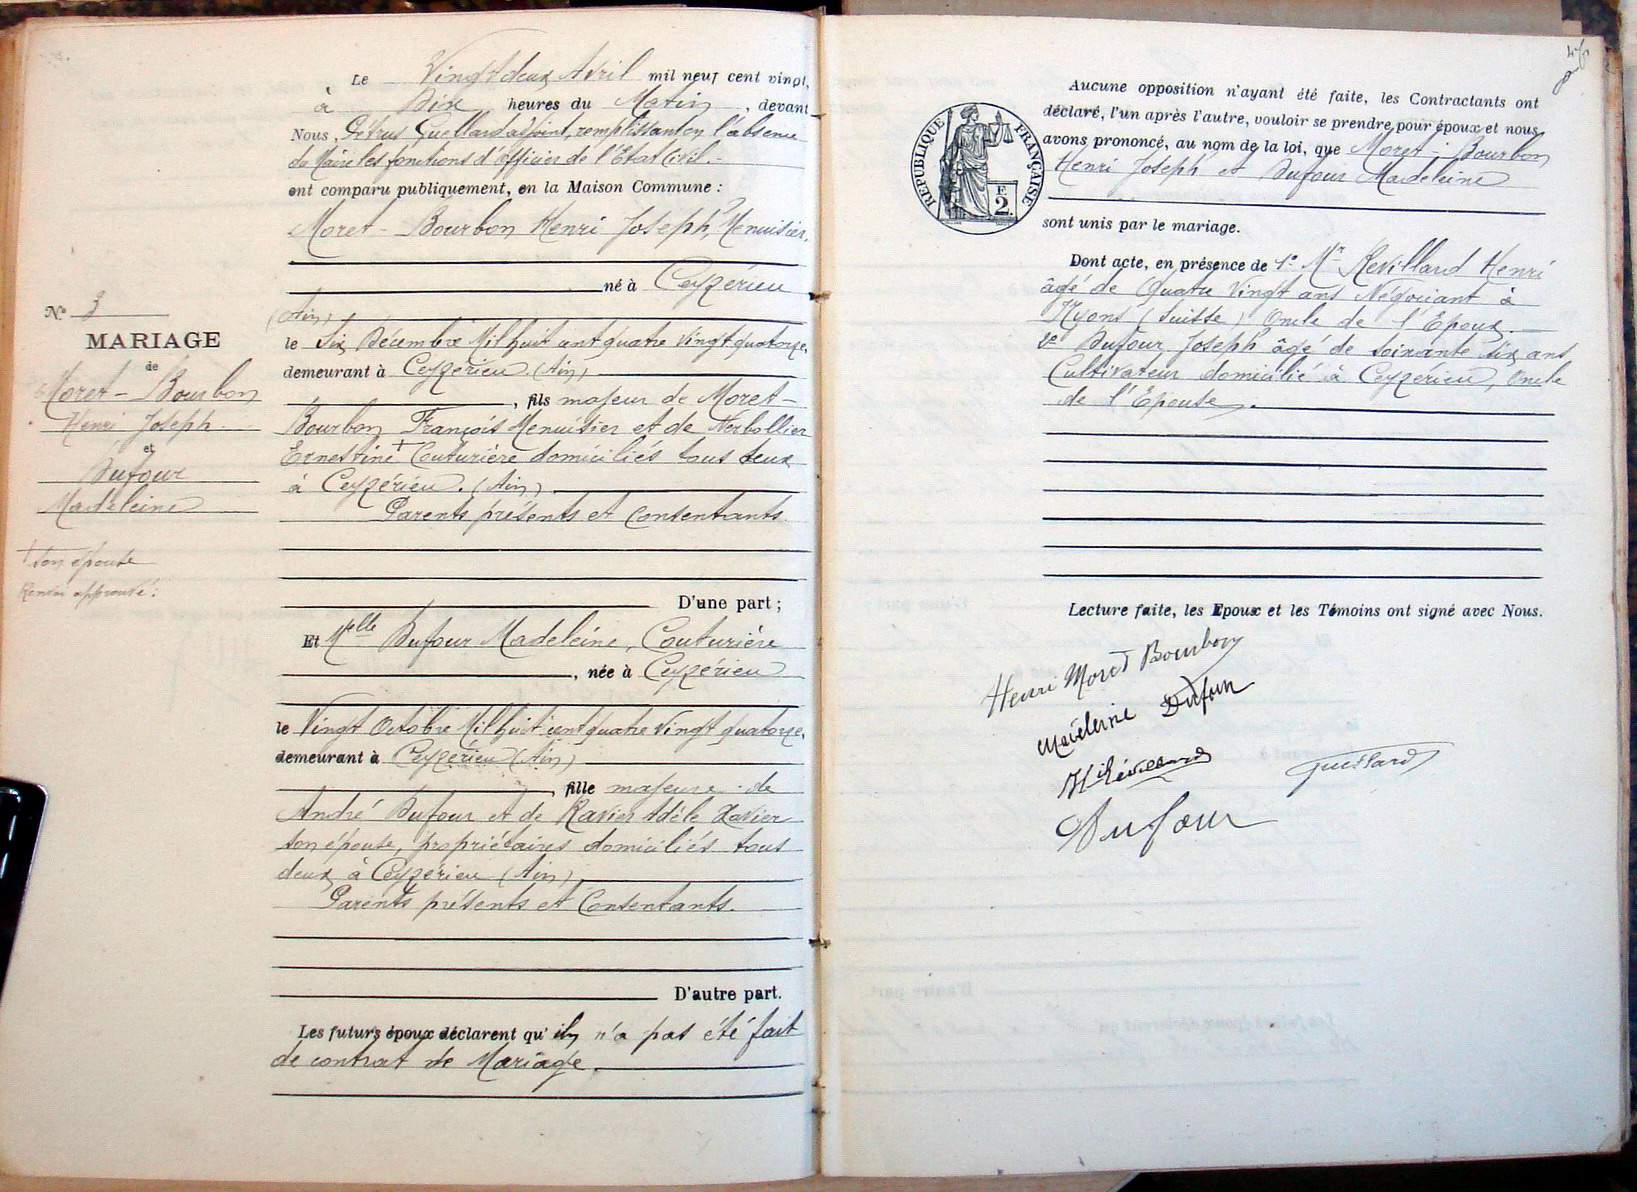 N° 3
MARIAGE
de
Moret - Bourbon
Henri Joseph
et
Dufour
Madeleine
† son épouse
Renvoi approuvé:
Le Vingt deux Avril mil neuf cent vingt,
à Dix heures du Matin, devant
Nous, Pétrus Guellard adjoint, remplissant en l'absence
du Maire les fonctions d'officier de l'Etat Civil.-
ont comparu publiquement, en la Maison Commune :
Moret - Bourbon Henri Joseph, Menuisier,
né à Ceyzérieu
(Ain)
le Six Décembre Mil huit cent quatre vingt quatorze,
demeurant à Ceyzérieu (Ain)
, fils majeur de Moret-
Bourbon François Menuisier et de Nerbollier
Ernestine † Couturière domiciliés tous deux
à Ceyzérieu. (Ain)
Parents présents et Consentants.
D'une part ;
Et Melle Dufour Madeleine, Couturière
, née à Ceyzérieu
le Vingt Octobre Mil huit cent quatre Vingt quatorze,
demeurant à Ceyzérieu (Ain)
, fille majeure de
André Dufour et de Ravier Adèle Xavier
son épouse, propriétaires domiciliés tous
deux à Ceyzérieu (Ain)
Parents présents et Consentants.
D'autre part.
Les futurs époux déclarent qu'il n'a pas été fait
de contrat de Mariage.
RÉPUBLIQUE FRANÇAISE
F
2.
Aucune opposition n'ayant été faite, les Contractants ont
déclaré, l'un après l'autre, vouloir se prendre pour époux et nous
avons prononcé, au nom de la loi, que Moret - Bourbon
Henri Joseph et Dufour Madeleine
sont unis par le mariage.
Dont acte, en présence de 1° Mr Revillard Henri
âgé de Quatre Vingt ans Négociant à
Nyons (Suisse) Oncle de l'Epoux.
2° Dufour Joseph âgé de soixante six ans
Cultivateur domicilié à Ceyzérieu, Oncle
de l'Epouse.
Lecture faite, les Epoux et les Témoins ont signé avec Nous.
Henri Moret Bourbon
Madeleine Dufour
H Révillard
Guellard
Dufour